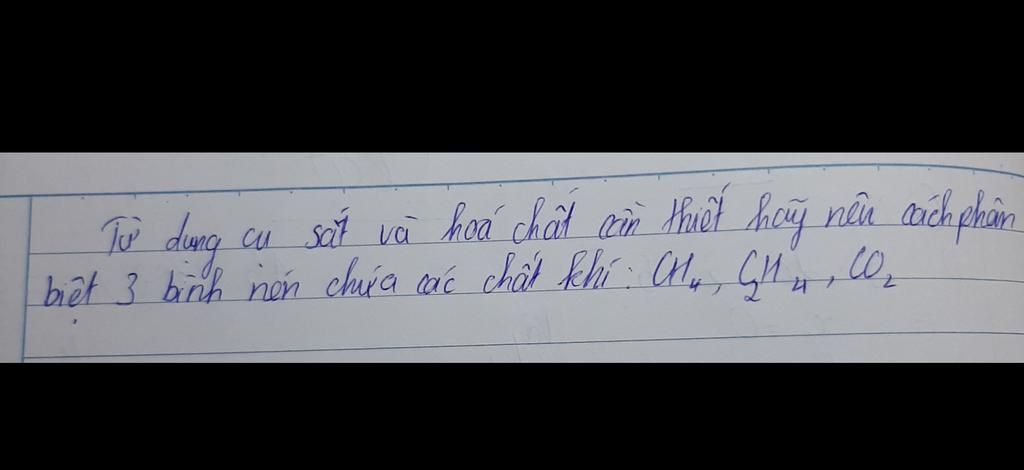 Từ dụng cụ sắt và hoá chất cần thiết hãy nên cách phân
biệt 3 bình nón chứa các chất khí: CH₄, C₂H₄, CO₂